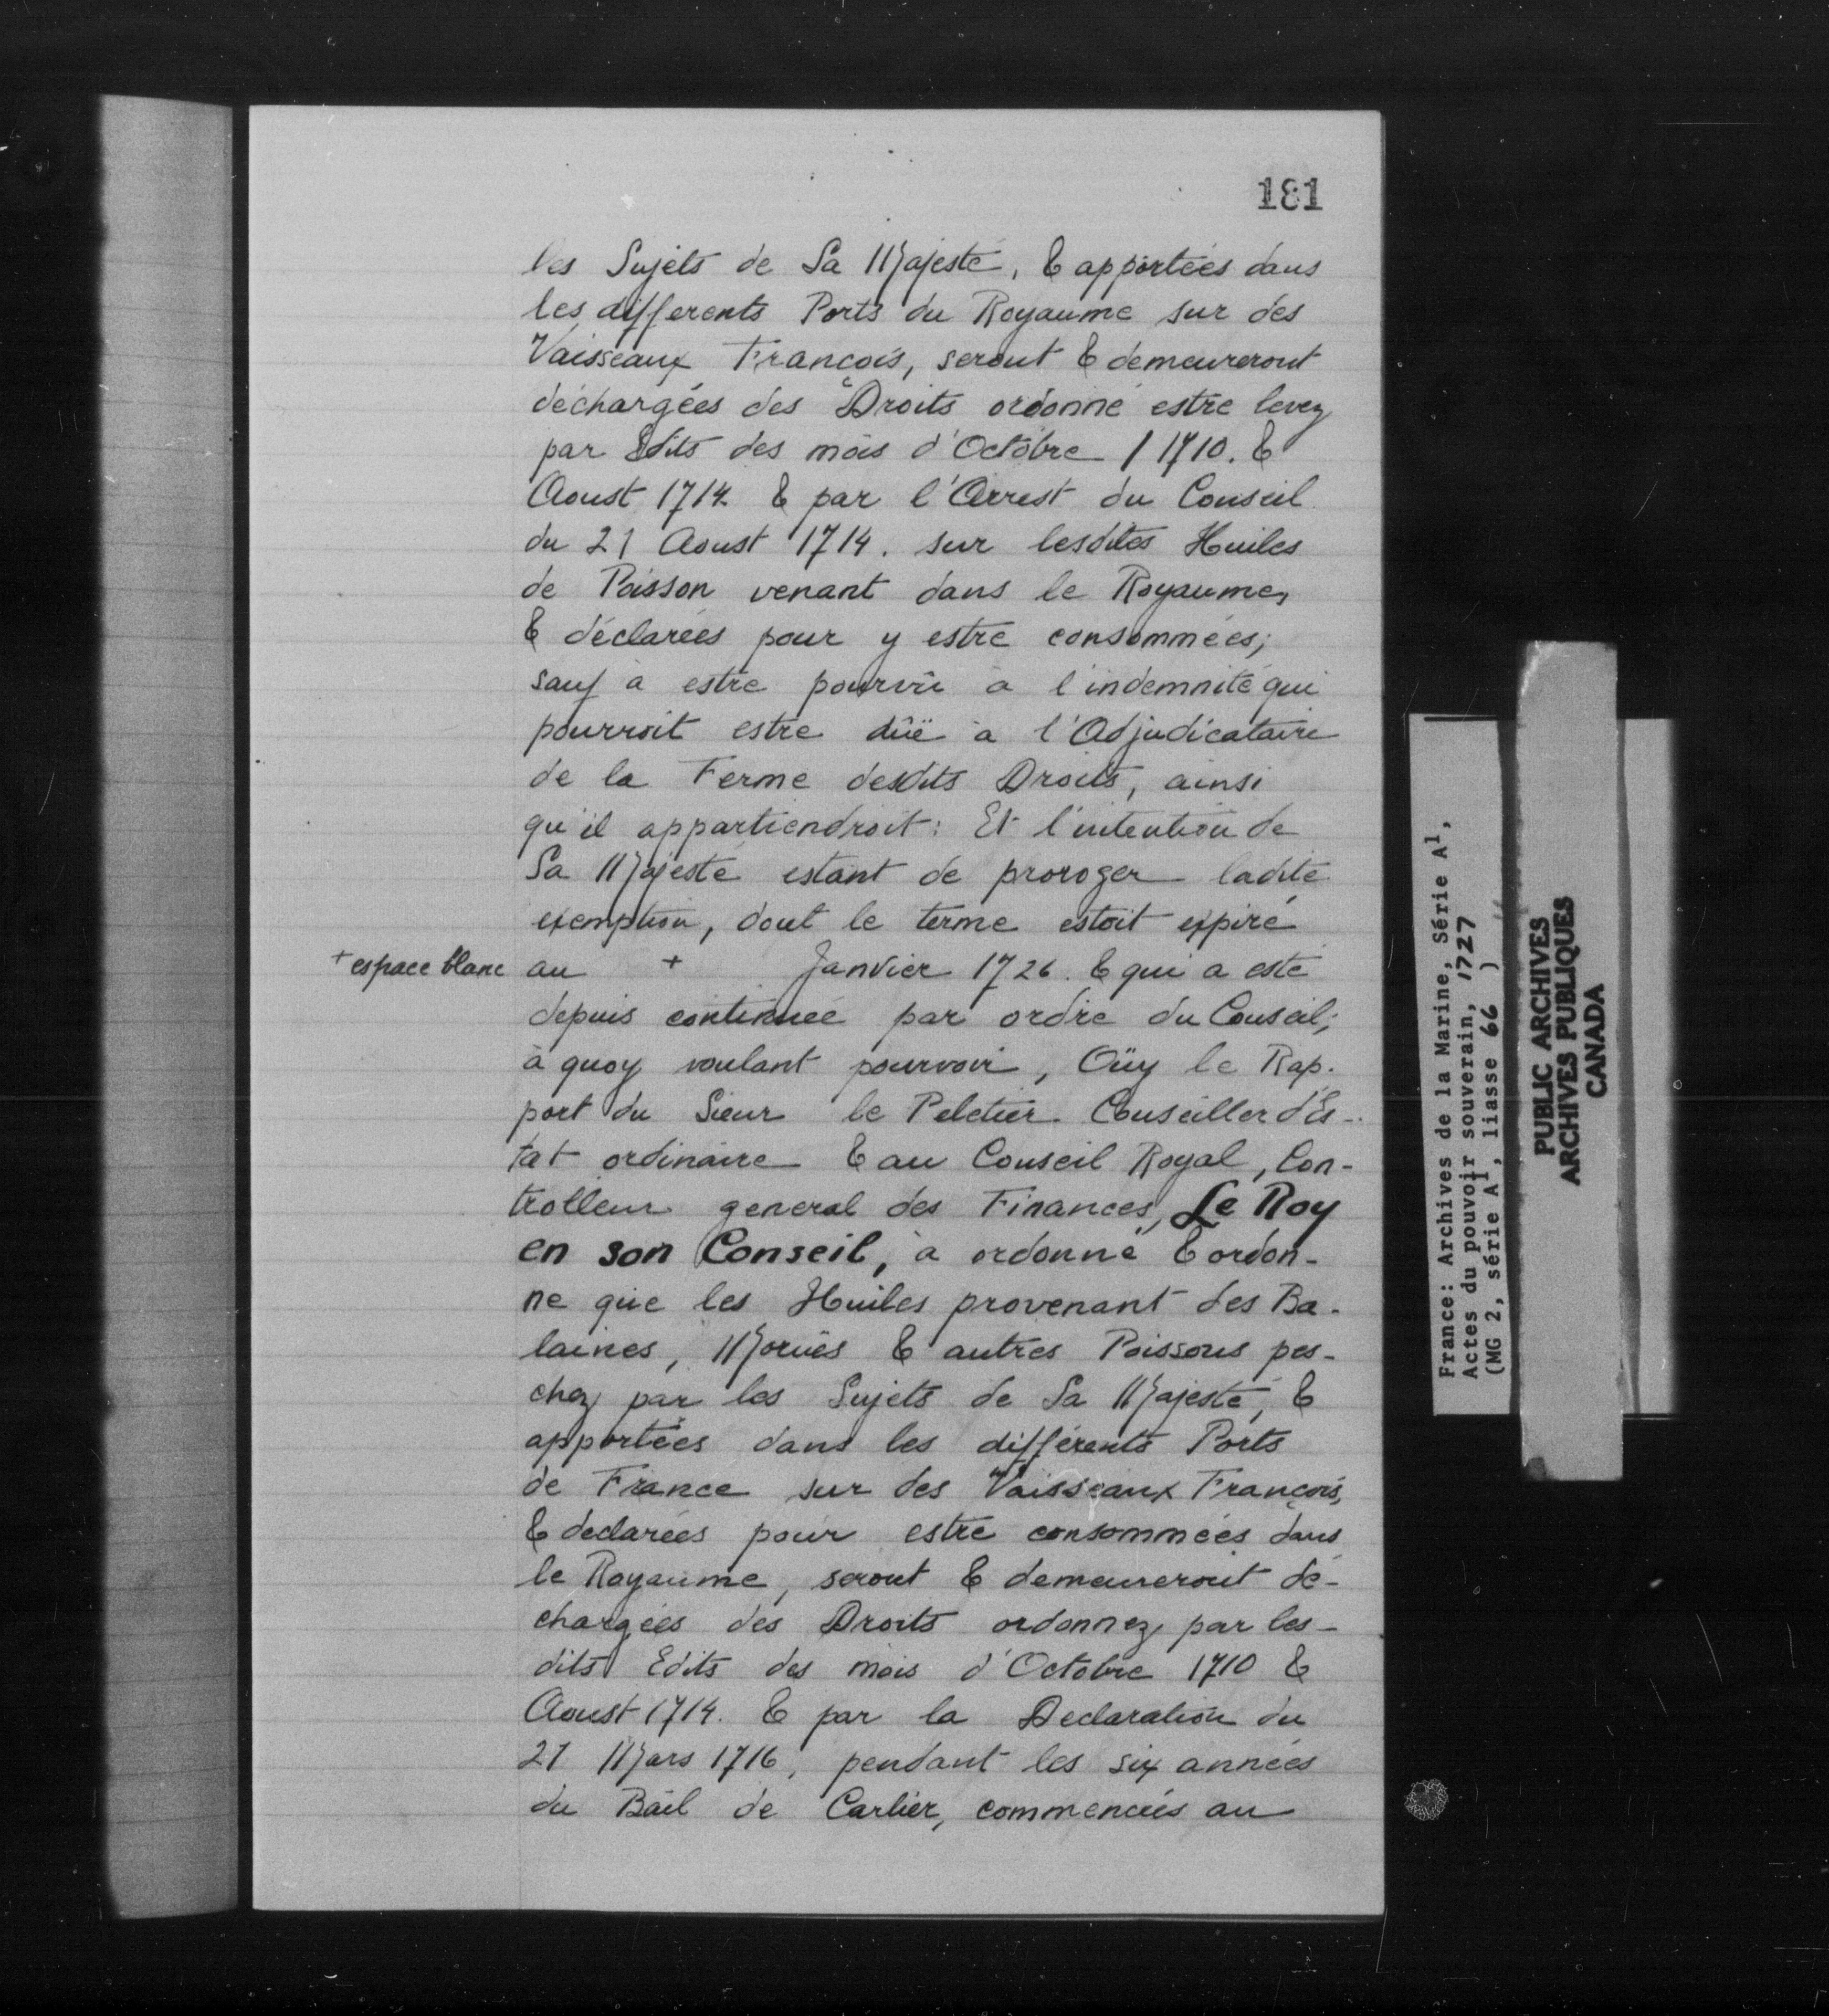 181
les Sujets de Sa Majesté, & apportées dans
les differents Ports du Royaume sur des
Vaisseaux François, seront & demeureront
déchargées des Droits ordonné estre levez
par Edits des mois d'Octobre 1710. &
Aoust 1714 & par l'Arrest du Conseil
du 21 Aoust 1714. sur lesdites Huiles
de Poisson venant dans le Royaume,
& déclarées pour y estre consommées;
sauf à estre pourvû à l'indemnité qui
pourroit estre dûë à l'Adjudicataire
de la Ferme desdits Droits, ainsi
qu'il appartiendroit: Et l'intention de
Sa Majesté estant de proroger ladite
exemption, dont le terme estoit expiré
+ espace blanc au + Janvier 1726. & qui a esté
depuis continuée par ordre du Conseil;
à quoy voulant pourvoir, Oüy le Rap-
port du Sieur le Peletier Conseiller d'Es-
tat ordinaire & au Conseil Royal, Con-
trolleur general des Finances, Le Roy
en son Conseil, a ordonné & ordon-
ne que les Huiles provenant des Ba-
laines, Moruës & autres Poissons pes-
chez par les Sujets de Sa Majesté, &
apportées dans les différents Ports
de France sur des Vaisseaux François,
& declarées pour estre consommées dans
le Royaume, seront & demeureront dé-
chargées des Droits ordonnez par les-
dits Edits des mois d'Octobre 1710 &
Aoust 1714. & par la Declaration du
21 Mars 1716, pendant les six années
du Bail de Carlier, commencées au
France: Archives de la Marine, Série A1,
Actes du pouvoir souverain, 1727
(MG 2, série A1, liasse 66 )
PUBLIC ARCHIVES
ARCHIVES PUBLIQUES
CANADA